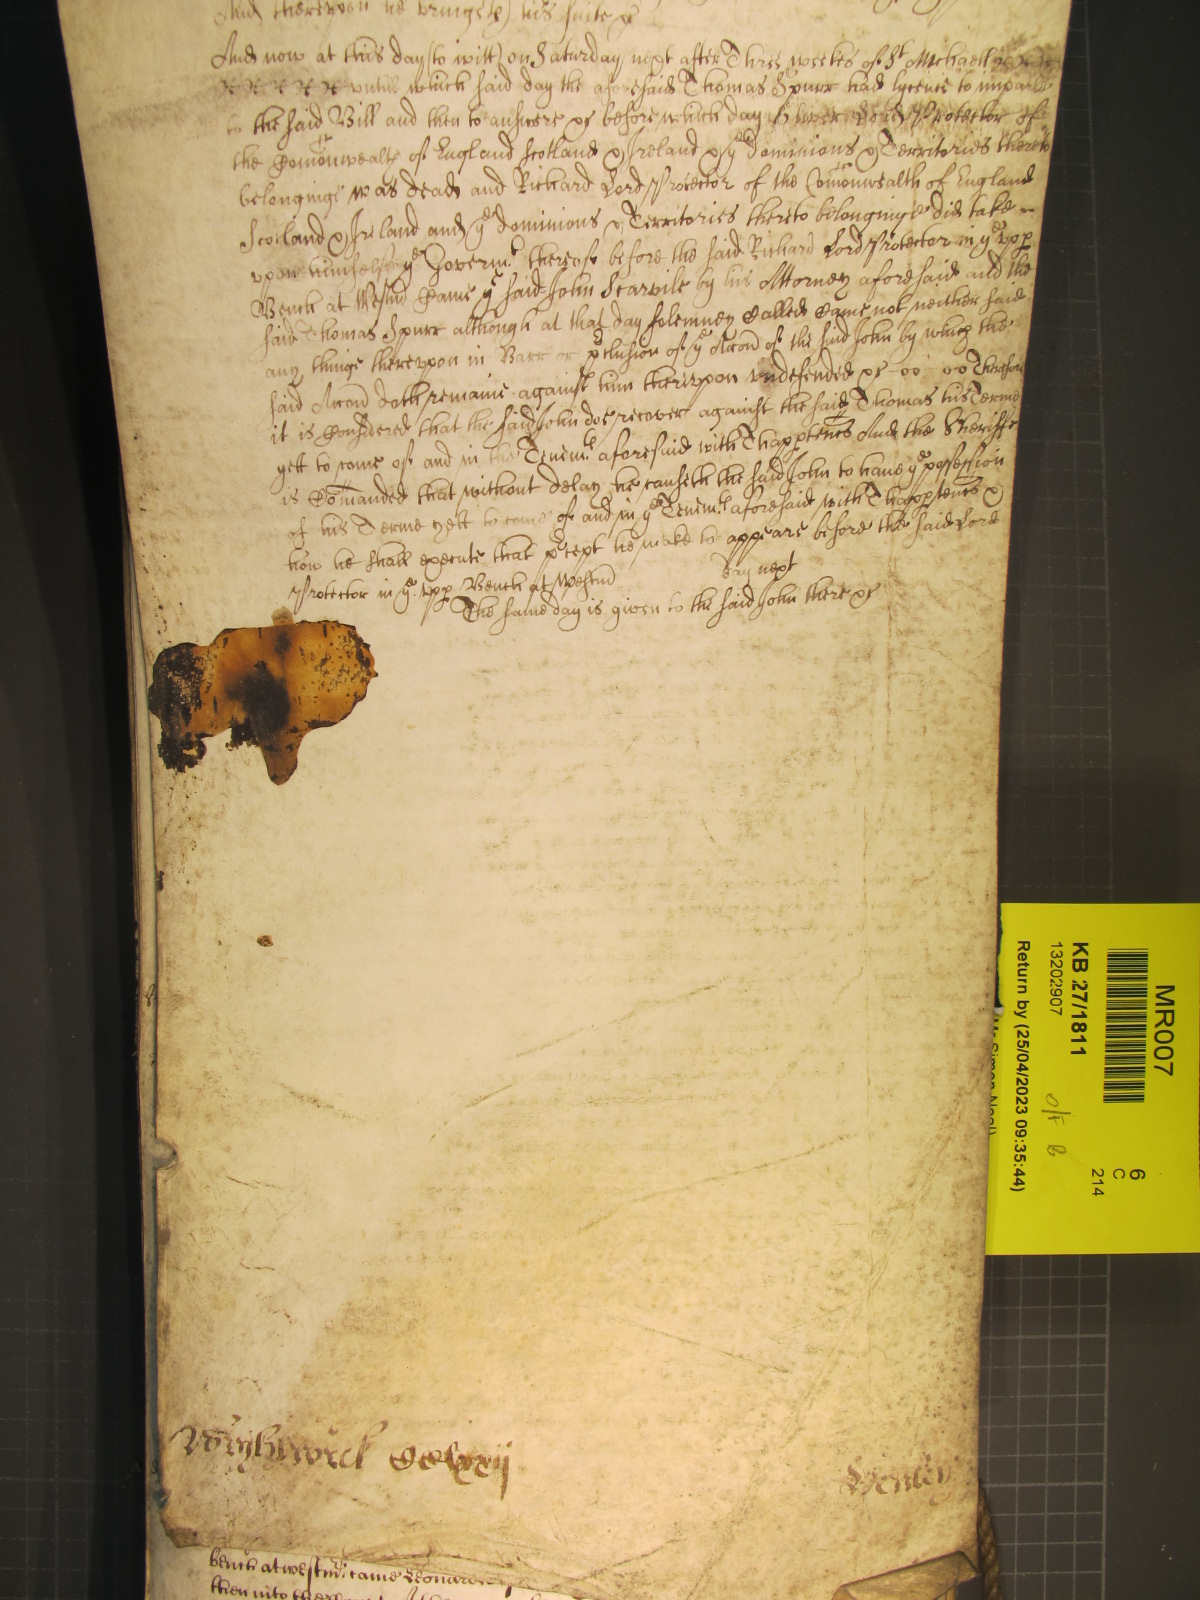 And therevpon he bringeth his suite &c
And now at this day (to witt) on Saturday next after Three weekes of St Michaell
untill which said day the aforesaid Thomas Spurr had lycence to imparle
to the said Bill and then to answere &c before which day Oliver Lord Protector of
the Comonwealth of England Scotland & Ireland & ye dominions & Territories thereto
belonginge was dead and Richard Lord Protector of the Comonwealth of England
Scotland & Ireland and ye dominions & Territories thereto belonginge did take
vpon himselfe ye Governmt thereof before the said Richard Lord Protector in ye vpp
Bench at Westmr Came ye said John Scarvile by his Attorney aforesaid and the
said Thomas Spurr although at that day solemney Called Came not neither said
any thinge therevpon in Barr or pclusion of ye Accon of the said John by which the
said Accon doth remaine against him therevpon vndefended &c Therefore
it is Considered that the said John doe recover against the said Thomas his Terme
yett to come of and in the Tenemts aforesaid with Thapptencs And the Sheriffe
is Comanded that without delay he causeth the said John to have ye possession
of his Terme yett to come of and in ye Tenemts aforesaid with Thapptencs &
how he shall execute that pcept he make to appeare before the said Lord
Protector in ye vpp Bench at Westmr day next
The same day is given to the said John there &c
Wightwick
Henley
bench at westmr came Leonard
then into the
MR007
KB 27/1811
13202907
Return by (25/04/2023 09:35:44)
6
C
214
O/F B